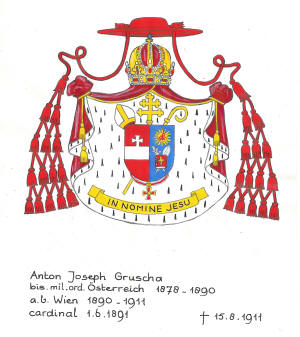 IN NOMINE JESU
Anton Joseph Gruscha
bis. mil. ord. Österreich 1878 - 1890
a.b. Wien 1890 - 1911
cardinal 1.6.1891 † 15.8.1911